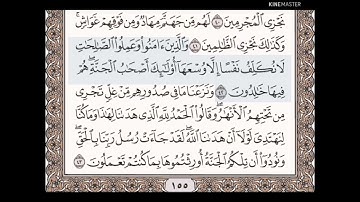 KINEMASTER
نَجْزِي الْمُجْرِمِينَ ٤٠ لَهُم مِّن جَهَنَّمَ مِهَادٌ وَمِن فَوْقِهِمْ غَوَاشٍ ۚ
وَكَذَٰلِكَ نَجْزِي الظَّالِمِينَ ٤١ وَالَّذِينَ آمَنُوا وَعَمِلُوا الصَّالِحَاتِ
لَا نُكَلِّفُ نَفْسًا إِلَّا وُسْعَهَا أُولَٰئِكَ أَصْحَابُ الْجَنَّةِ ۖ هُمْ
فِيهَا خَالِدُونَ ٤٢ وَنَزَعْنَا مَا فِي صُدُورِهِم مِّنْ غِلٍّ تَجْرِي
مِن تَحْتِهِمُ الْأَنْهَارُ ۖ وَقَالُوا الْحَمْدُ لِلَّهِ الَّذِي هَدَانَا لِهَٰذَا وَمَا كُنَّا
لِنَهْتَدِيَ لَوْلَا أَنْ هَدَانَا اللَّهُ ۖ لَقَدْ جَاءَتْ رُسُلُ رَبِّنَا بِالْحَقِّ ۖ
وَنُودُوا أَن تِلْكُمُ الْجَنَّةُ أُورِثْتُمُوهَا بِمَا كُنتُمْ تَعْمَلُونَ ٤٣
١٥٥